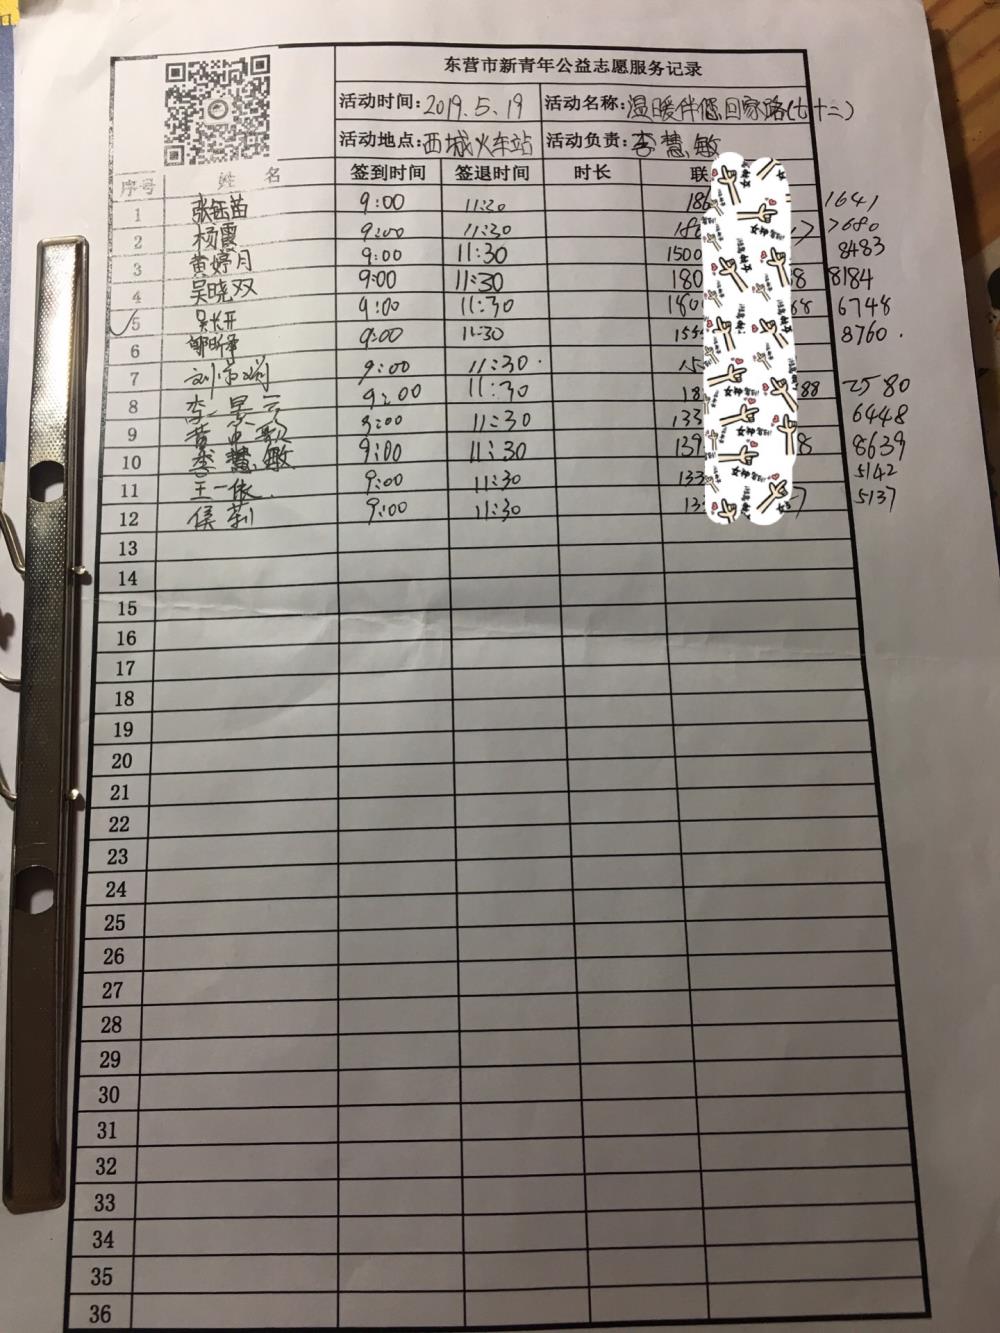 东营市新青年公益志愿服务记录
活动时间: 2019.5.19 活动名称: 温暖伴您回家路(七十二)
活动地点: 西城火车站 活动负责: 李慧敏
序号 姓名 签到时间 签退时间 时长 联
1 张钰苗 9:00 11:30 186 1641
2 杨霞 9:00 11:30 7680
3 黄婷月 9:00 11:30 1500 8483
4 吴晓双 9:00 11:30 180 8184
5 9:00 11:30 180 6748
6 9:00 11:30 8760
7 9:00 11:30
8 李景云 9:00 11:30 18 88 2580
9 9:00 11:30 133 6448
10 李慧敏 9:00 11:30 139 8639
11 王一依 9:00 11:30 133 5142
12 侯莉 9:00 11:30 5137
13
14
15
16
17
18
19
20
21
22
23
24
25
26
27
28
29
30
31
32
33
34
35
36